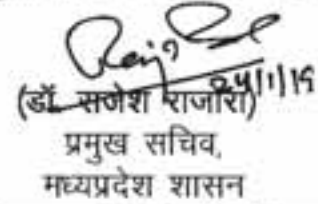 24/1/19
(डॉ. राजेश राजौरा)
प्रमुख सचिव,
मध्यप्रदेश शासन